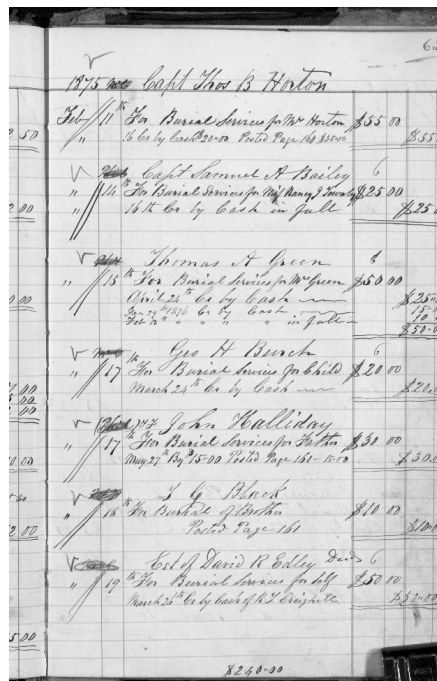 1875 Capt Thos B Horton
Feb 11th For Burial Services for Mr Horton $55 00
" 16 Cr by Cash $20-00 Posted Page 160 $35-00 $55
Capt Samuel A Bailey 6
" 14th For Burial Services for Nancy J $25 00
" 16th Cr by Cash in full $25
Thomas A Green
" 15th For Burial Services for Mr Green $50 00
April 24th Cr by Cash $25
1876 Cr by Cash 15
Feb " " " " in full 10
$50-0
Geo H Burch 6
" 17th For Burial Services for Child $20 00
March 24th Cr by Cash $20
John Halliday
" 17th For Burial Services for Father $30 00
May 27th By $15-00 Posted Page 161-15-00 $30
S G Black
" 18th For Burial of Brother $10 00
Posted Page 161 $10-0
Est of David R Edley Decd 6
" 19th For Burial Services for Self $50 00
March 26th Cr by Cash of $50-00
$240-00